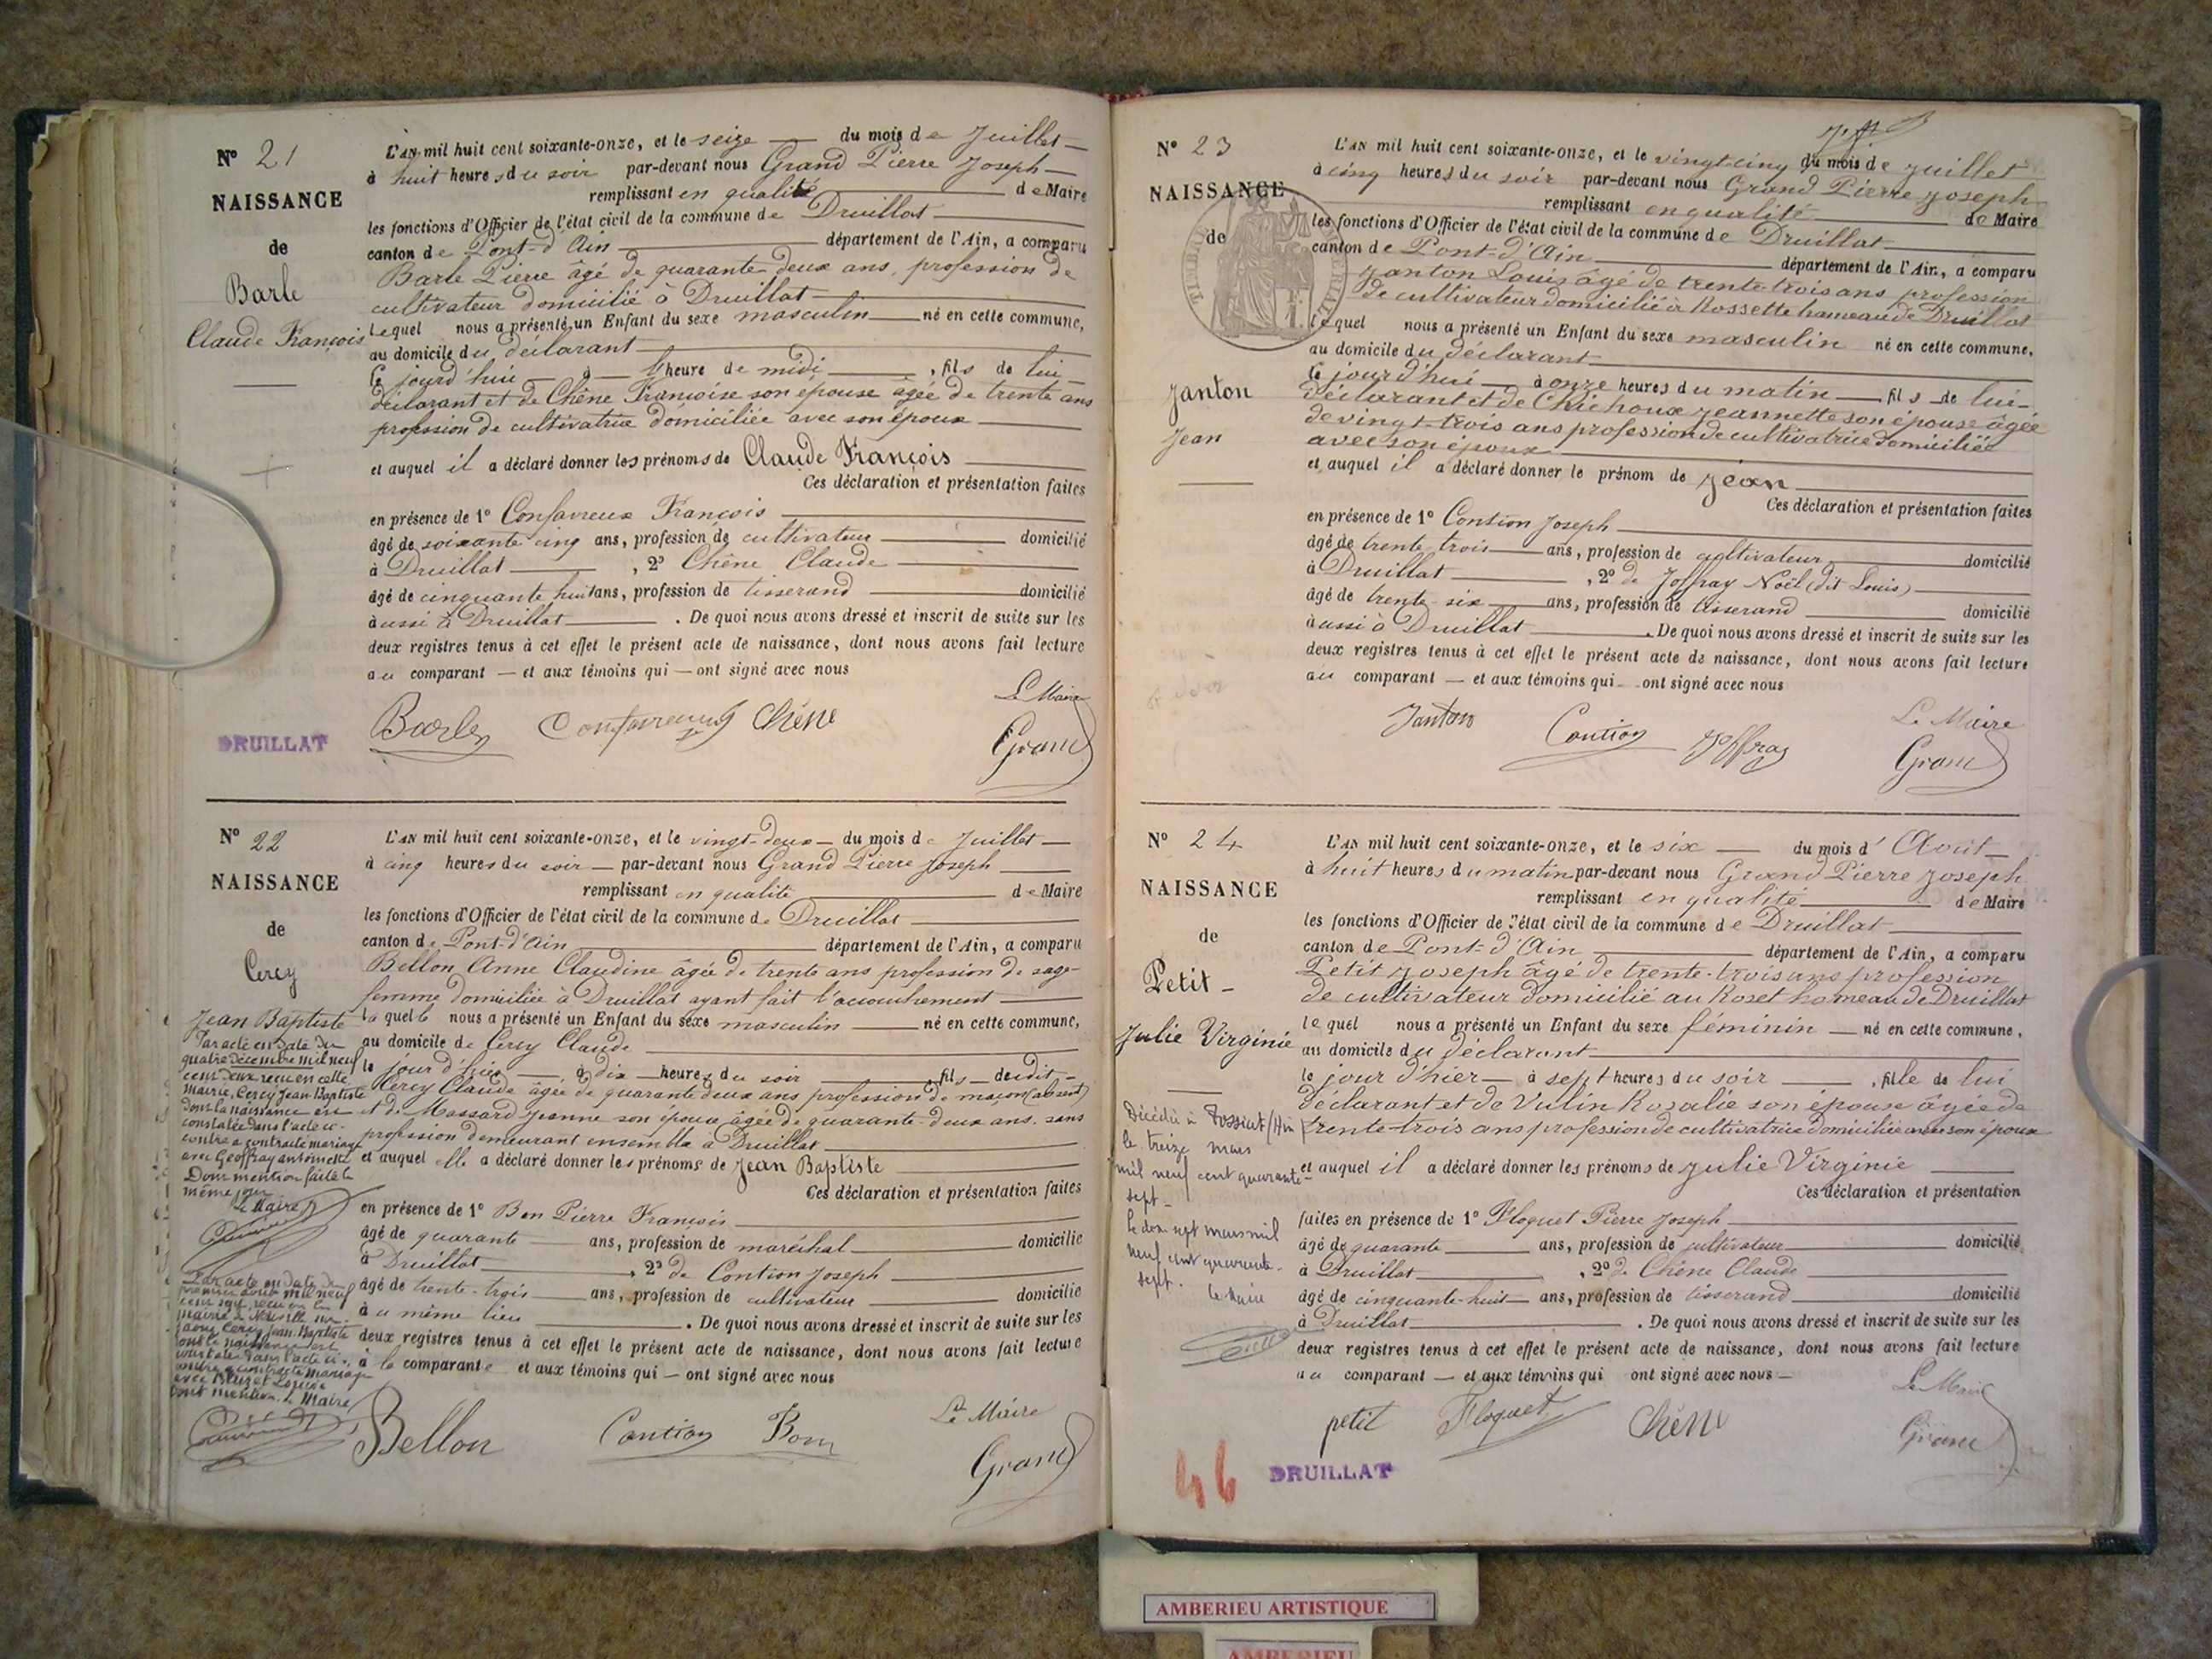 N° 21
NAISSANCE
de
Barle
Claude François
L'AN mil huit cent soixante-onze, et le seize du mois de Juillet
à huit heures du soir par-devant nous Grand Pierre Joseph
remplissant en qualité de Maire
les fonctions d'Officier de l'état civil de la commune de Druillat
canton de Pont-d'Ain département de l'Ain, a comparu
Barle Pierre âgé de quarante deux ans, profession de
cultivateur domicilié à Druillat
Lequel nous a présenté un Enfant du sexe masculin né en cette commune,
au domicile du déclarant
le jourd'hui à l'heure de midi, fils de lui
déclarant et de Chêne Françoise son épouse âgée de trente ans
profession de cultivatrice domiciliée avec son époux
et auquel il a déclaré donner les prénoms de Claude François
Ces déclaration et présentation faites
en présence de 1° Confavreux François
âgé de soixante cinq ans, profession de cultivateur domicilié
à Druillat, 2° Chêne Claude
âgé de cinquante huit ans, profession de tisserand domicilié
aussi à Druillat. De quoi nous avons dressé et inscrit de suite sur les
deux registres tenus à cet effet le présent acte de naissance, dont nous avons fait lecture
au comparant — et aux témoins qui — ont signé avec nous
Le Maire
Barle Confavreux Chêne
Grand
DRUILLAT
N° 22
NAISSANCE
de
Cercy
Jean Baptiste
Par acte en date du
quatre décembre mil neuf
cent deux reçu en cette
mairie, Cercy Jean Baptiste
dont la naissance est
constatée dans l'acte ci-
contre a contracté mariage
avec Geoffray Antoinette
Dont mention faite le
même jour
Le Maire
Par acte en date du
premier août mil neuf
cent sept, reçu en la
mairie de Neuville sur
Cercy Jean Baptiste
dont la naissance est
constatée dans l'acte ci-
contre a contracté mariage
avec
dont mention. Le Maire
L'AN mil huit cent soixante-onze, et le vingt-deux du mois de Juillet
à cinq heures du soir par-devant nous Grand Pierre Joseph
remplissant en qualité de Maire
les fonctions d'Officier de l'état civil de la commune de Druillat
canton de Pont-d'Ain département de l'Ain, a comparu
Bellon Anne Claudine âgée de trente ans profession de sage-
femme domiciliée à Druillat ayant fait l'accouchement
laquelle nous a présenté un Enfant du sexe masculin né en cette commune,
au domicile de Cercy Claude
le jour d'hier à dix heures du soir, fils dudit
Cercy Claude âgée de quarante deux ans profession de maçon (absent)
et de Massard Jeanne son épouse âgée de quarante-deux ans, sans
profession demeurant ensemble à Druillat
et auquel elle a déclaré donner les prénoms de Jean Baptiste
Ces déclaration et présentation faites
en présence de 1° Bon Pierre François
âgé de quarante ans, profession de maréchal domicilié
à Druillat, 2° de Contion Joseph
âgé de trente-trois ans, profession de cultivateur domicilié
au même lieu. De quoi nous avons dressé et inscrit de suite sur les
deux registres tenus à cet effet le présent acte de naissance, dont nous avons fait lecture
à la comparante et aux témoins qui — ont signé avec nous
Le Maire
Bellon Contion Bon
Grand
N° 23
NAISSANCE
de
Janton
Jean
L'AN mil huit cent soixante-onze, et le vingt-cinq du mois de Juillet
à cinq heures du soir par-devant nous Grand Pierre Joseph
remplissant en qualité de Maire
les fonctions d'Officier de l'état civil de la commune de Druillat
canton de Pont-d'Ain département de l'Ain, a comparu
Janton Louis âgé de trente trois ans profession
de cultivateur domicilié à Rossette hameau de Druillat
lequel nous a présenté un Enfant du sexe masculin né en cette commune,
au domicile du déclarant
le jourd'hui à onze heures du matin fils de lui
déclarant et de Chichoux Jeannette son épouse âgée
de vingt-trois ans profession de cultivatrice domiciliée
avec son époux
et auquel il a déclaré donner le prénom de Jean
Ces déclaration et présentation faites
en présence de 1° Contion Joseph
âgé de trente trois ans, profession de cultivateur domicilié
à Druillat, 2° de Joffray Noël (dit Louis)
âgé de trente-six ans, profession de tisserand domicilié
aussi à Druillat. De quoi nous avons dressé et inscrit de suite sur les
deux registres tenus à cet effet le présent acte de naissance, dont nous avons fait lecture
au comparant — et aux témoins qui ont signé avec nous
Le Maire
Janton Contion Joffray
Grand
N° 24
NAISSANCE
de
Petit
Julie Virginie
Décédée à Tossiat (Ain)
le treize mars
mil neuf cent quarante-
sept.
le dix sept mars mil
neuf cent quarante-
sept.
le Maire
L'AN mil huit cent soixante-onze, et le six du mois d'Août
à huit heures du matin par-devant nous Grand Pierre Joseph
remplissant en qualité de Maire
les fonctions d'Officier de l'état civil de la commune de Druillat
canton de Pont-d'Ain département de l'Ain, a comparu
Petit Joseph âgé de trente-trois ans profession
de cultivateur domicilié au Roset hameau de Druillat
lequel nous a présenté un Enfant du sexe féminin né en cette commune,
au domicile du déclarant
le jour d'hier à sept heures du soir, fille de lui
déclarant et de Vulin Rosalie son épouse âgée de
trente-trois ans profession de cultivatrice domiciliée avec son époux
et auquel il a déclaré donner les prénoms de Julie Virginie
Ces déclaration et présentation
faites en présence de 1° Floquet Pierre Joseph
âgé de quarante ans, profession de cultivateur domicilié
à Druillat, 2° de Chêne Claude
âgé de cinquante-huit ans, profession de tisserand domicilié
à Druillat. De quoi nous avons dressé et inscrit de suite sur les
deux registres tenus à cet effet le présent acte de naissance, dont nous avons fait lecture
au comparant — et aux témoins qui ont signé avec nous
Le Maire
petit Floquet Chêne
Grand
46
DRUILLAT
AMBERIEU ARTISTIQUE
AMBERIEU